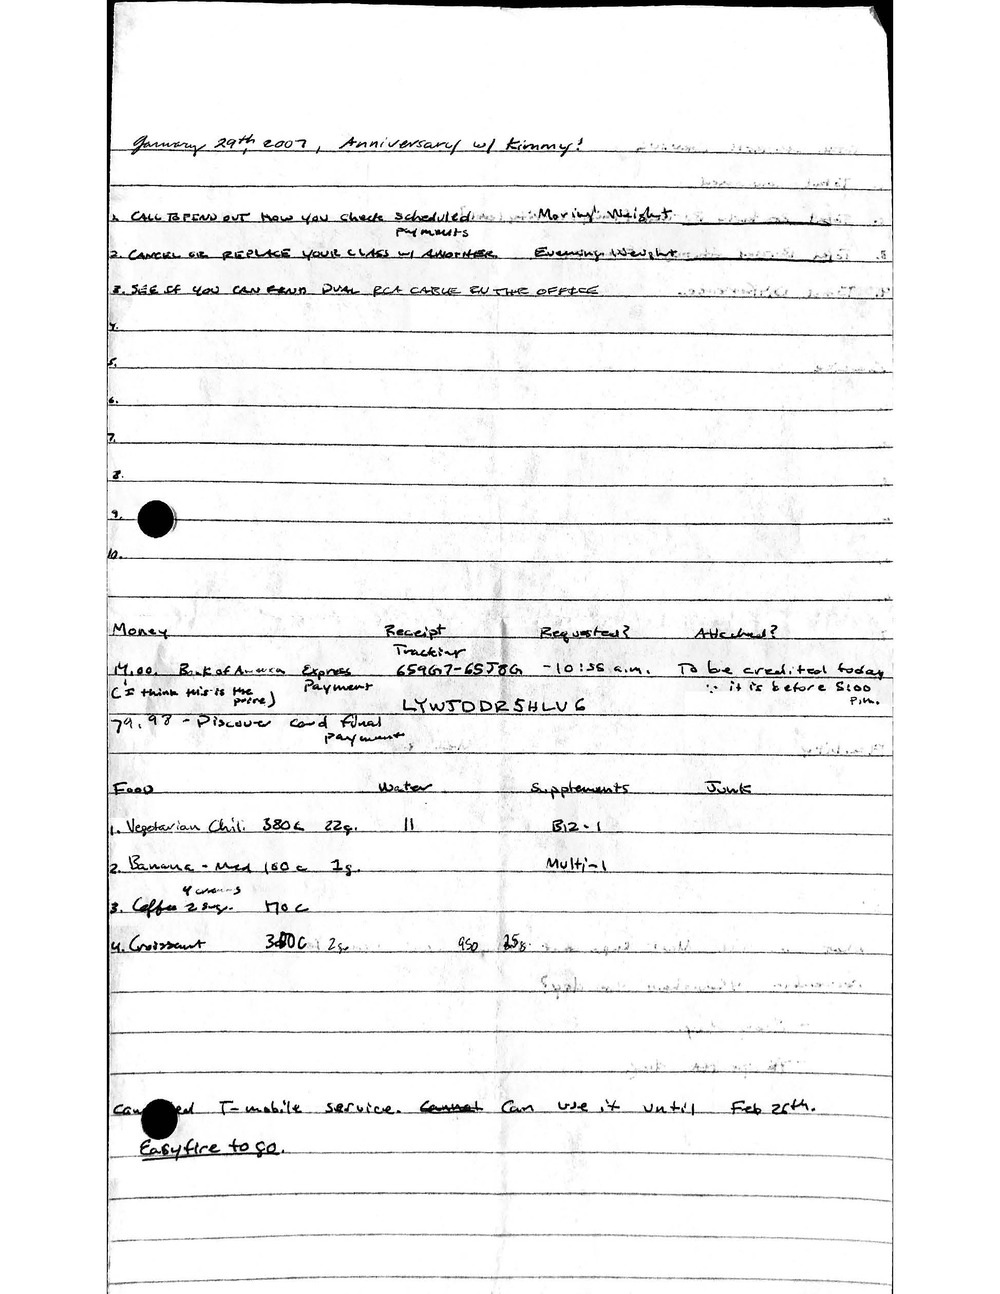 January 29th, 2007, Anniversary w/ Kimmy!
1. CALL TO FIND OUT HOW YOU check scheduled payments Morning Weight
2. CANCEL OR REPLACE YOUR CLASS W/ ANOTHER. Evening Weight
3. SEE IF YOU CAN FIND DUAL RCA CABLE IN THE OFFICE
4.
5.
6.
7.
8.
9.
10.
Money Receipt Requested? Attached?
Tracking
14.00. Bank of America Express Payment 659G7-65J8G -10:35 a.m. To be credited today
(I think this is the price) ∵ it is before 5:00 p.m.
LYWJDDR5HLV6
79.98 - Discover card final payment
Food Water Supplements Junk
1. Vegetarian Chili 380c 22g. 11 B12-1
2. Banana - Med 100c 1g. Multi-1
3. Coffee 2 sug. 4 creams 170c
4. Croissant 300c 2g. 950 25g.
T-mobile service. Cannot Can use it until Feb 25th.
Easyfire to go.